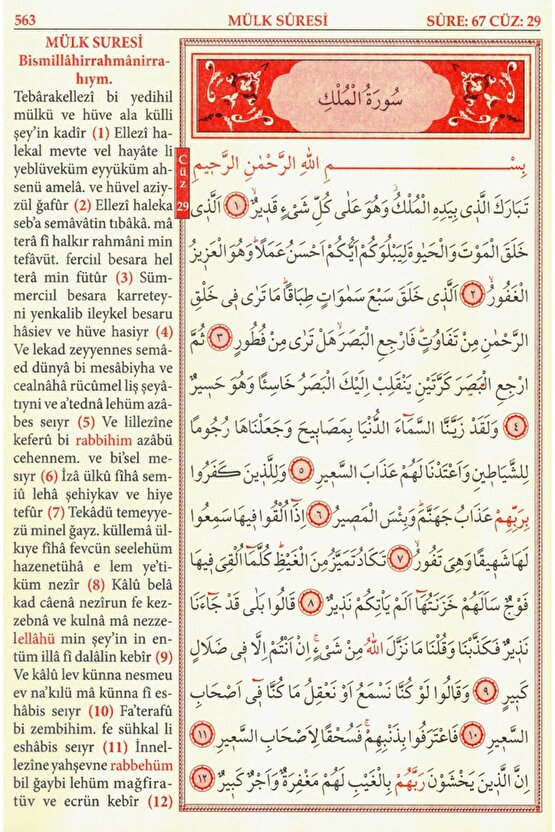 563 MÜLK SÛRESİ SÛRE: 67 CÜZ: 29
MÜLK SURESİ
Bismillâhirrahmânirra-
hıym.
Tebârakellezî bi yedihil
mülkü ve hüve ala külli
şey'in kadîr (1) Ellezî ha-
lekal mevte vel hayâte li
yeblüveküm eyyüküm ah-
senü amelâ. ve hüvel aziy-
zül ğafûr (2) Ellezî haleka
seb'a semâvâtin tıbâkâ. mâ
terâ fî halkır rahmâni min
tefâvüt. ferciıl besara hel
terâ min fütûr (3) Süm-
merciıl besara karretey-
ni yenkalib ileykel besaru
hâsiev ve hüve hasiyr (4)
Ve lekad zeyyennes semâ-
ed dünyâ bi mesâbiyha ve
cealnâhâ rücûmel liş şeyâ-
tıyni ve a'tednâ lehüm azâ-
bes seıyr (5) Ve lillezîne
keferû bi rabbihim azâbü
cehennem. ve bi'sel me-
sıyr (6) İzâ ülkû fîhâ sem-
iû lehâ şehiykav ve hiye
tefûr (7) Tekâdü temeyye-
zü minel ğayz. küllemâ ül-
kıye fîhâ fevcün seelehüm
hazenetühâ e lem ye'ti-
küm nezîr (8) Kâlû belâ
kad câenâ nezîrun fe kez-
zebnâ ve kulnâ mâ nezze-
lellâhü min şey'in in en-
tüm illâ fî dalâlin kebîr (9)
Ve kâlû lev künna nesmeu
ev na'kılü mâ künna fî es-
hâbis seıyr (10) Fa'terafû
bi zembihim. fe sühkal li
eshâbis seıyr (11) İnnel-
lezîne yahşevne rabbehüm
bil ğaybi lehüm mağfira-
tüv ve ecrün kebîr (12)
سُورَةُ الْمُلْكِ
Cüz 29
بِسْمِ اللّٰهِ الرَّحْمٰنِ الرَّحٖيمِ
تَبَارَكَ الَّذٖى بِيَدِهِ الْمُلْكُۘ وَهُوَ عَلٰى كُلِّ شَىْءٍ قَدٖيرٌۙ ﴿١﴾ اَلَّذٖى
خَلَقَ الْمَوْتَ وَالْحَيٰوةَ لِيَبْلُوَكُمْ اَيُّكُمْ اَحْسَنُ عَمَلًاؕ وَهُوَ الْعَزٖيزُ
الْغَفُورُۙ ﴿٢﴾ اَلَّذٖى خَلَقَ سَبْعَ سَمٰوَاتٍ طِبَاقًاؕ مَا تَرٰى فٖى خَلْقِ
الرَّحْمٰنِ مِنْ تَفَاوُتٍؕ فَارْجِعِ الْبَصَرَۙ هَلْ تَرٰى مِنْ فُطُورٍ ﴿٣﴾ ثُمَّ
ارْجِعِ الْبَصَرَ كَرَّتَيْنِ يَنْقَلِبْ اِلَيْكَ الْبَصَرُ خَاسِئًا وَهُوَ حَسٖيرٌ
﴿٤﴾ وَلَقَدْ زَيَّنَّا السَّمَٓاءَ الدُّنْيَا بِمَصَابٖيحَ وَجَعَلْنَاهَا رُجُومًا
لِلشَّيَاطٖينِ وَاَعْتَدْنَا لَهُمْ عَذَابَ السَّعٖيرِ ﴿٥﴾ وَلِلَّذٖينَ كَفَرُوا
بِرَبِّهِمْ عَذَابُ جَهَنَّمَؕ وَبِئْسَ الْمَصٖيرُ ﴿٦﴾ اِذَٓا اُلْقُوا فٖيهَا سَمِعُوا
لَهَا شَهٖيقًا وَهِىَ تَفُورُۙ ﴿٧﴾ تَكَادُ تَمَيَّزُ مِنَ الْغَيْظِؕ كُلَّمَٓا اُلْقِىَ فٖيهَا
فَوْجٌ سَاَلَهُمْ خَزَنَتُهَٓا اَلَمْ يَاْتِكُمْ نَذٖيرٌ ﴿٨﴾ قَالُوا بَلٰى قَدْ جَٓاءَنَا
نَذٖيرٌ فَكَذَّبْنَا وَقُلْنَا مَا نَزَّلَ اللّٰهُ مِنْ شَىْءٍۚ اِنْ اَنْتُمْ اِلَّا فٖى ضَلَالٍ
كَبٖيرٍ ﴿٩﴾ وَقَالُوا لَوْ كُنَّا نَسْمَعُ اَوْ نَعْقِلُ مَا كُنَّا فٖٓى اَصْحَابِ
السَّعٖيرِ ﴿١٠﴾ فَاعْتَرَفُوا بِذَنْبِهِمْۚ فَسُحْقًا لِاَصْحَابِ السَّعٖيرِ ﴿١١﴾
اِنَّ الَّذٖينَ يَخْشَوْنَ رَبَّهُمْ بِالْغَيْبِ لَهُمْ مَغْفِرَةٌ وَاَجْرٌ كَبٖيرٌ ﴿١٢﴾